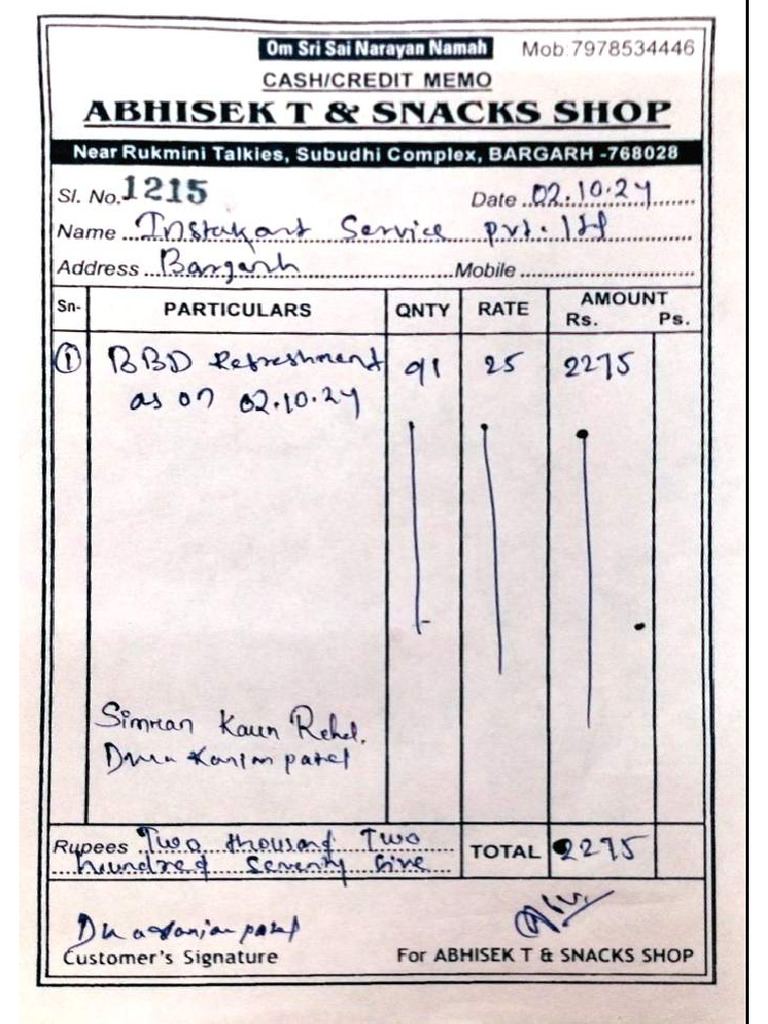 Om Sri Sai Narayan Namah Mob: 7978534446
CASH/CREDIT MEMO
ABHISEK T & SNACKS SHOP
Near Rukmini Talkies, Subudhi Complex, BARGARH -768028
Sl. No. 1215 Date 02.10.24
Name Instakart Service pvt. ltd
Address Bargarh Mobile
Sn- PARTICULARS QNTY RATE AMOUNT
Rs. Ps.
1 BBD Refreshment 91 25 2275
as on 02.10.24
Simran Kaur
patel
Rupees Two thousand Two
hundred Seventy five TOTAL 2275
patel
Customer's Signature For ABHISEK T & SNACKS SHOP